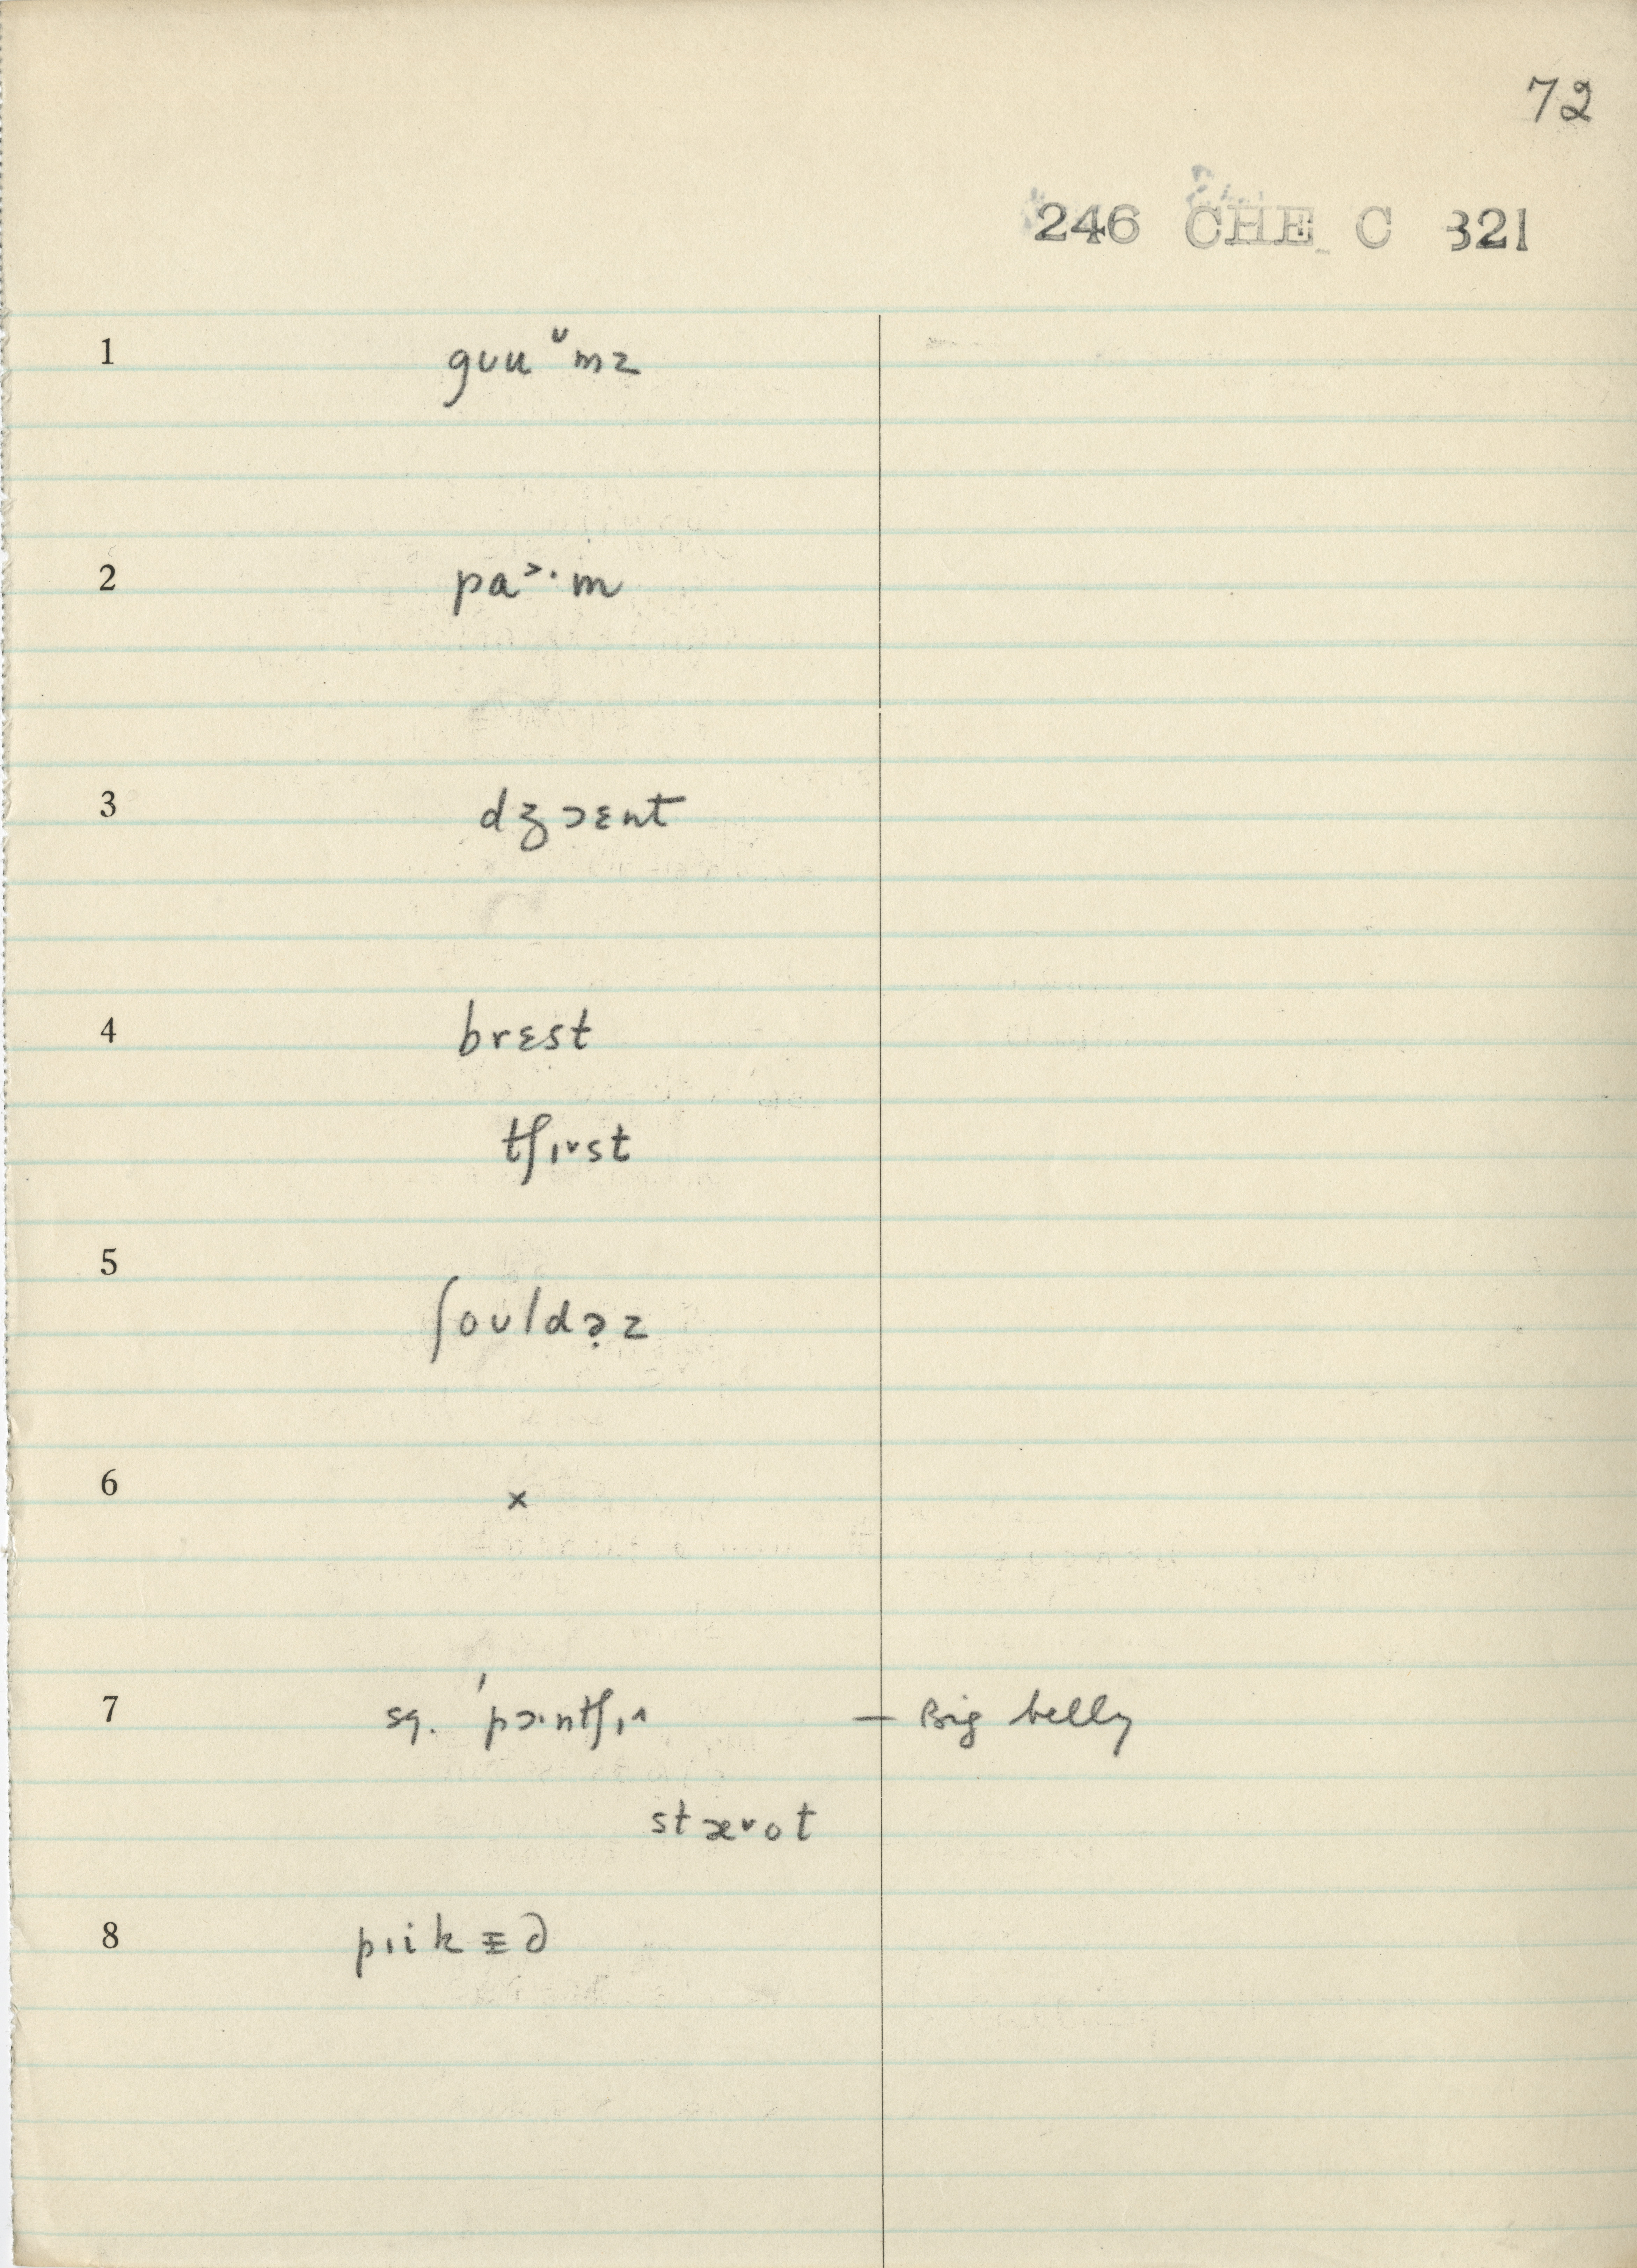 72
246 CHE C 321
1 gʊu ˅mz
2 pa˃·m
3 dʒɔɛnt
4 brɛst
tʃɪ˅st
5 ʃoʊldə̣z
6 ×
7 sq. ˈpɔ·ntʃɪ˄ — Big belly
stæ˅ot
8